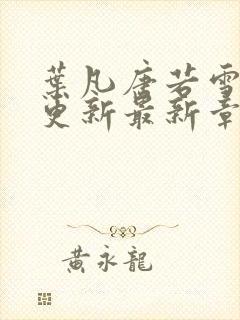 葉凡唐若雪
更新最新章
黃永龍